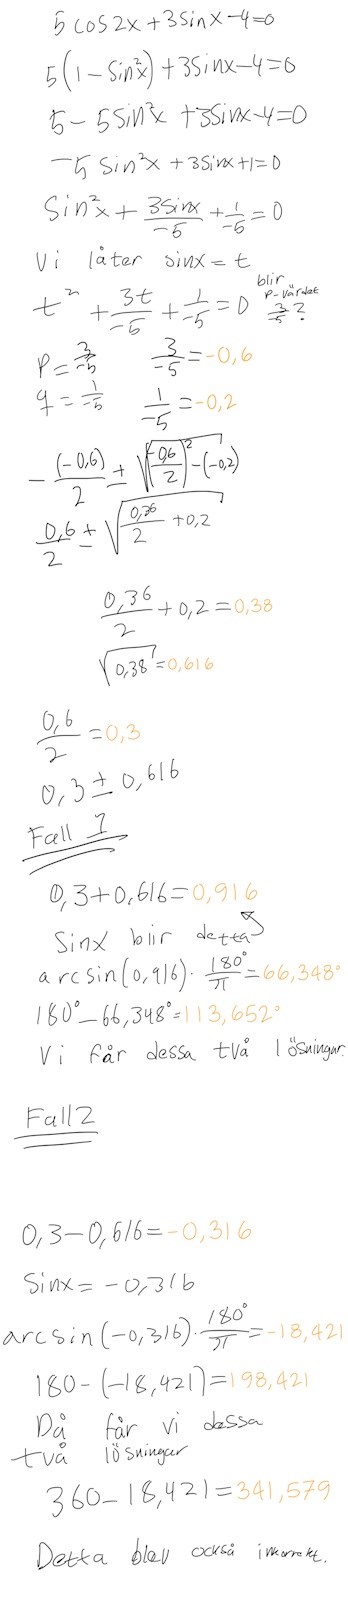 5 cos2x + 3sinx - 4 = 0
5(1 - sin²x) + 3sinx - 4 = 0
5 - 5sin²x + 3sinx - 4 = 0
-5 sin²x + 3sinx + 1 = 0
Sin²x + 3sinx/-5 + 1/-5 = 0
Vi låter sinx = t
t² + 3t/-5 + 1/-5 = 0 blir p-värdet 3/-5 ?
p = 3/-5 3/-5 = -0,6
q = 1/-5 1/-5 = -0,2
-(-0,6)/2 ± √((-0,6/2)² - (-0,2))
0,6/2 ± √(0,36/2 + 0,2)
0,36/2 + 0,2 = 0,38
√0,38 = 0,616
0,6/2 = 0,3
0,3 ± 0,616
Fall 1
0,3 + 0,616 = 0,916
Sinx blir detta
arcsin(0,916) · 180°/π = 66,348°
180° - 66,348° = 113,652°
Vi får dessa två lösningar.
Fall 2
0,3 - 0,616 = -0,316
Sinx = -0,316
arcsin(-0,316) · 180°/π = -18,421
180 - (-18,421) = 198,421
Då får vi dessa
två lösningar
360 - 18,421 = 341,579
Detta blev också inkorrekt.